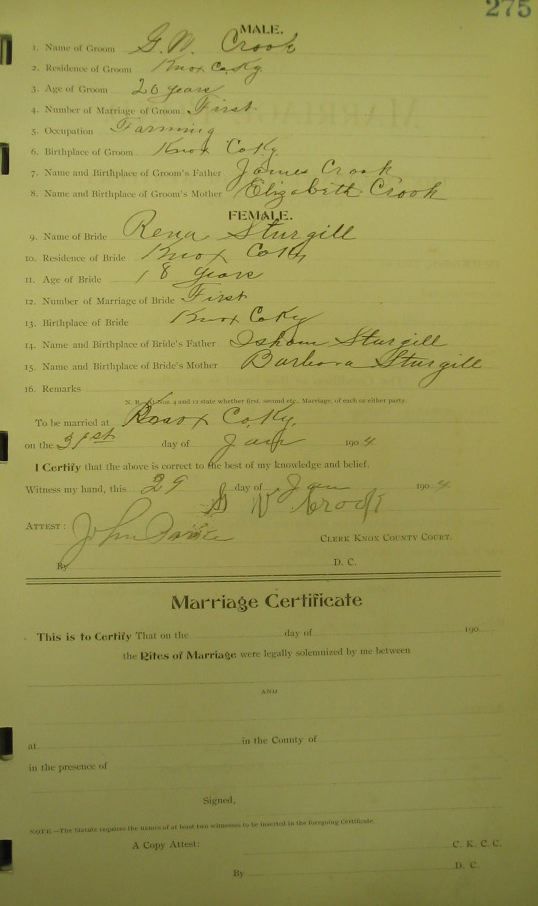 275
MALE.
1. Name of Groom G. W. Crook
2. Residence of Groom Knox Co. Ky.
3. Age of Groom 20 years
4. Number of Marriage of Groom First
5. Occupation Farming
6. Birthplace of Groom Knox Co Ky
7. Name and Birthplace of Groom's Father James Crook
8. Name and Birthplace of Groom's Mother Elizabeth Crook
FEMALE.
9. Name of Bride Rena Sturgill
10. Residence of Bride Knox Co Ky
11. Age of Bride 18 years
12. Number of Marriage of Bride First
13. Birthplace of Bride Knox Co Ky
14. Name and Birthplace of Bride's Father Isham Sturgill
15. Name and Birthplace of Bride's Mother Barbara Sturgill
16. Remarks
N. B.—At Nos. 4 and 12 state whether first, second etc., Marriage, of each or either party.
To be married at Knox Co. Ky.
on the 31st day of Jan 1904
I Certify that the above is correct to the best of my knowledge and belief.
Witness my hand, this 29 day of Jan 1904
G W Crook
ATTEST: John
CLERK KNOX COUNTY COURT.
By D. C.
Marriage Certificate
This is to Certify That on the day of 190
the Rites of Marriage were legally solemnized by me between
AND
at in the County of
in the presence of
Signed,
NOTE—The Statute requires the names of at least two witnesses to be inserted in the foregoing Certificate.
A Copy Attest: C. K. C. C.
By D. C.